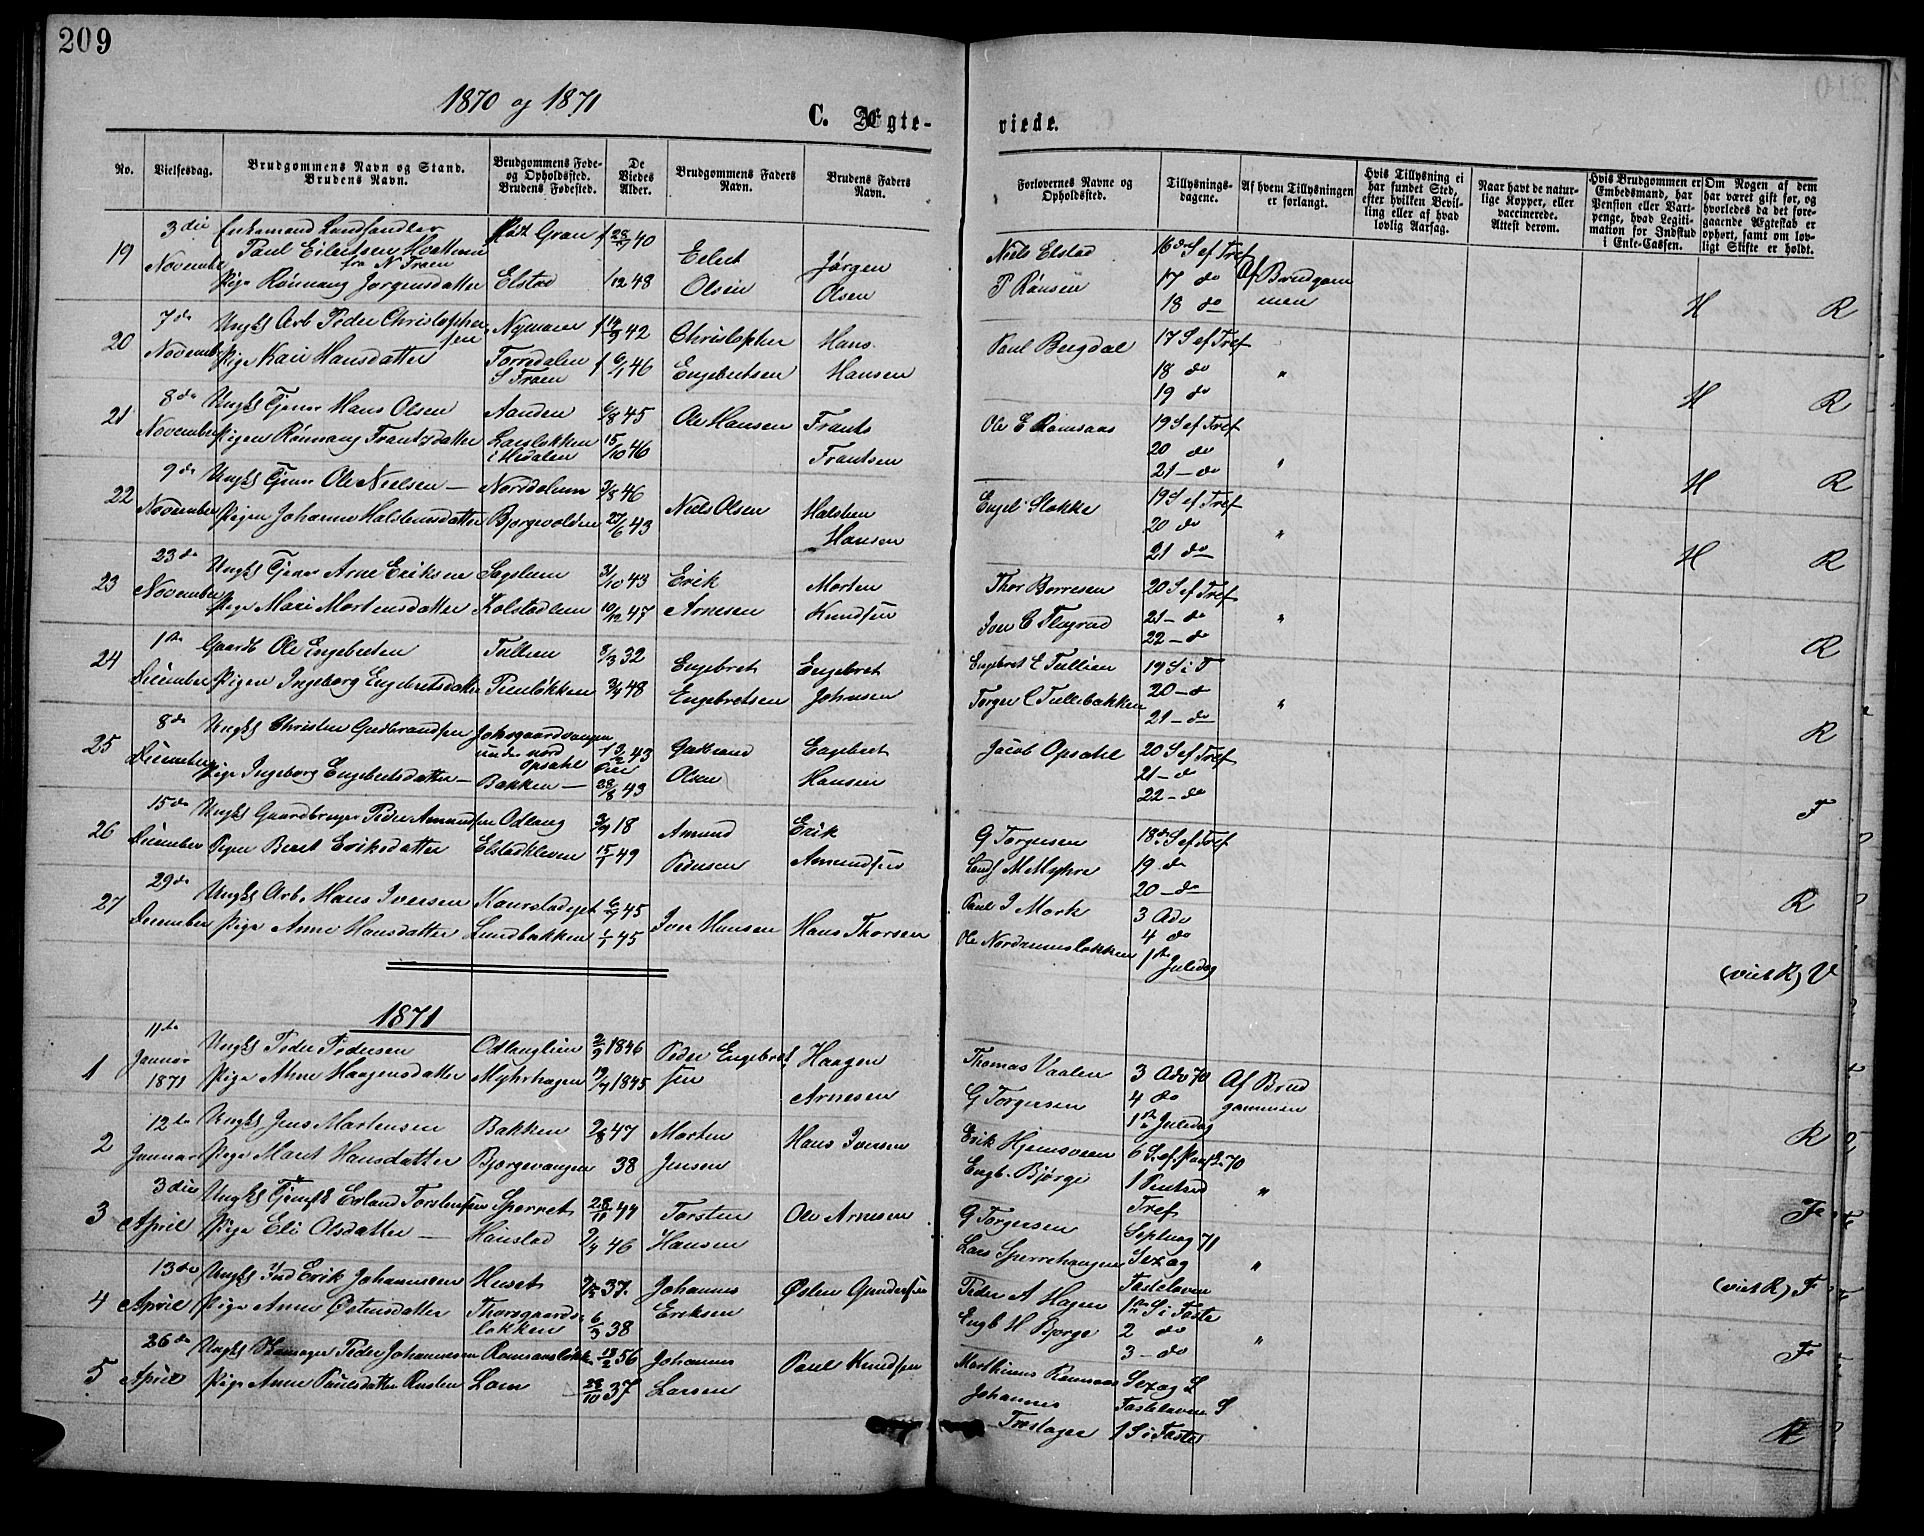 209
1870 og 1871
C. Ægte-
viede.
No.
Vielsesdag.
Brudgommens Navn og Stand.
Brudens Navn.
Brudgommens Føde-
og Opholdssted.
Brudens Fødested.
De
Viedes
Alder.
Brudgommens Faders
Navn.
Brudens Faders
Navn.
Forlovernes Navne og
Opholdssted.
Tillysnings-
dagene.
Af hvem Tillysningen
er forlangt.
Hvis Tillysning ei
har fundet Sted,
efter hvilken Bevil-
ling eller af hvad
lovlig Aarsag.
Naar havt de natur-
lige Kopper, eller
vaccinerede.
Attest derom.
Hvis Brudgommen er
Embedsmand, har
Pension eller Vart-
penge, hvad Legiti-
mation for Indskud
i Enke-Cassen.
Om Nogen af dem
har været gift før, og
hvorledes da det fore-
gaaende Ægteskab er
ophørt, samt om lov-
ligt Skifte er holdt.
19
3die
November
Enkemand Landhandler
Paul Eilertsen
fra N Fron
Pige Rønnaug Jørgensdatter
Elstad
28/7 40
/12 48
Eilert
Olsen
Jørgen
Olsen
Niels Elstad
P Rønsen
16de S ef Tref
17 do
18 do
Af Brudgom
men
H R
20
7de
November
Ungk Arb Peder Christophen
sen
Pige Kari Hansdatter
Nymoen
Torsdalen
S Fron
14/9 42
6/1 46
Christopher
Engebretsen
Hans
Hansen
Paul Bergdal
17 S ef Tref
18 do
19 do
"
H R
21
8de
November
Ungk Tjener Hans Olsen
Pigen Rønnaug Frantzdatter
Aanden
Larsløkken
i Hedalen
6/8 45
15/10 46
Ole Hansen
Frants
Frantsen
Ole E Ramsaas
19 S ef Tref
20 do
21 - do
"
H R
22
9de
November
Ungk Tjener Ole Nielsen -
Pigen Johanne Halstensdatter
Norddalum
Bjørgevolden
3/8 46
27/6 43
Niels Olsen
Halsten
Hansen
Engel Slokke
19 S ef Tref
20 do
21 do
"
H R
23
23de
November
Ungk Tjener Arne Eriksen
Pige Mari Mortensdatter
Sagstuen
Kolstadlien
3/10 43
10/12 47
Erik
Arnesen
Morten
Knudsen
Thor Borresen
Iver E Flugrud
20 S ef Tref
21 - do
22 - do
"
R
24
1ste
December
Gaardb Ole Engebretsen
Pigen Ingeborg Engebretsdatter
Tullien
Tunløkken
8/3 32
3/4 48
Engebret
Engebretsen
Engebret
Johnsen
Engebret E Tullien
Torger E Tullebakken
19 S i T
20 - do
21 - do
"
R
25
8de
December
Ungk Christen Gudbrandsen
Pige Ingeborg Engebretsdatter -
Johsgaardvangen
under nord
Opsahl
Bakken -
43
28/8 43
Gudbrand
Olsen
Engebret
Hansen
Jacob Opsahl
20 S ef Tref
21 - do
22 - do
F
26
15de
December
Ungk Gaardbruger Peder Amundsen
Pigen Beret Eriksdatter
Odlaug
Elstadkleven
3/9 18
15/1 49
Amund
Pedersen
Erik
Amundsen
G Torgersen
Landh M Myhre
18de S ef Tref
19 do
20 - do
R
27
29de
December
Ungk Arb. Hans Iversen
Pige Anne Hansdatter
Kaurstadeget
Lundbakken
6/7 45
1/1 45
Iver Hansen
Hans Thorsen
Paul J Mork
Ole Nordrumsløkken
3 Adv
4 do
1ste Juledag
(viet R) V
1871
1
11te
Januar
1871
Ungk Peder Pedersen
Pige Anne Haagensdatter
Odlauglien
Myhrhagen
2/9 1846
19/7 1845
Peder Engebret
sen
Haagen
Arnesen
Thomas Vaalen
G Torgersen
3 Adv 70
4 do
1ste Juledag
Af Brud
gommen
R
2
12te
Januar
Ungk Jens Mortensen
Pige Marit Hansdatter
Bakken
Bjørgevangen
2/8 47
38
Morten
Jensen
Hans Iversen
Erik Hjemsveen
Engb. Bjørge
6 S. ef. Paask 70
1 Pintsed
Tref
"
F
3
3die
April
Ungk Erland Torstensen
Pige Eli Olsdatter -
Sperret
Haustad
28/11 44
2/4 46
Torsten
Hansen
Ole Arnesen
G Torgersen
Lars Sperrehaugen
Septuag 71
Sexag
Fastelaven
"
(viet R) F
4
13de
April
Ungk Ind Erik Johannesen
Pige Anne Østensdatter
Huset
Thorsgaards-
løkken
2/5 37.
6/3 38
Johannes
Eriksen
Østen Gundersen
Peder A Hagen
Engb H Bjørge
1ste S i Faste
2 do
3 - do
"
F
5
26de
April
Ungk Peder Johannesen
Pige Anne Paulsdatter Ruslen
Ramsaasløkk
Lom
18/2 56
28/10 37
Johannes
Larsen
Paul Knudsen
Marthinus Ramsaas
Johannes
Træstager
Sexag S
Fastelaven S
1 S i Faste
R